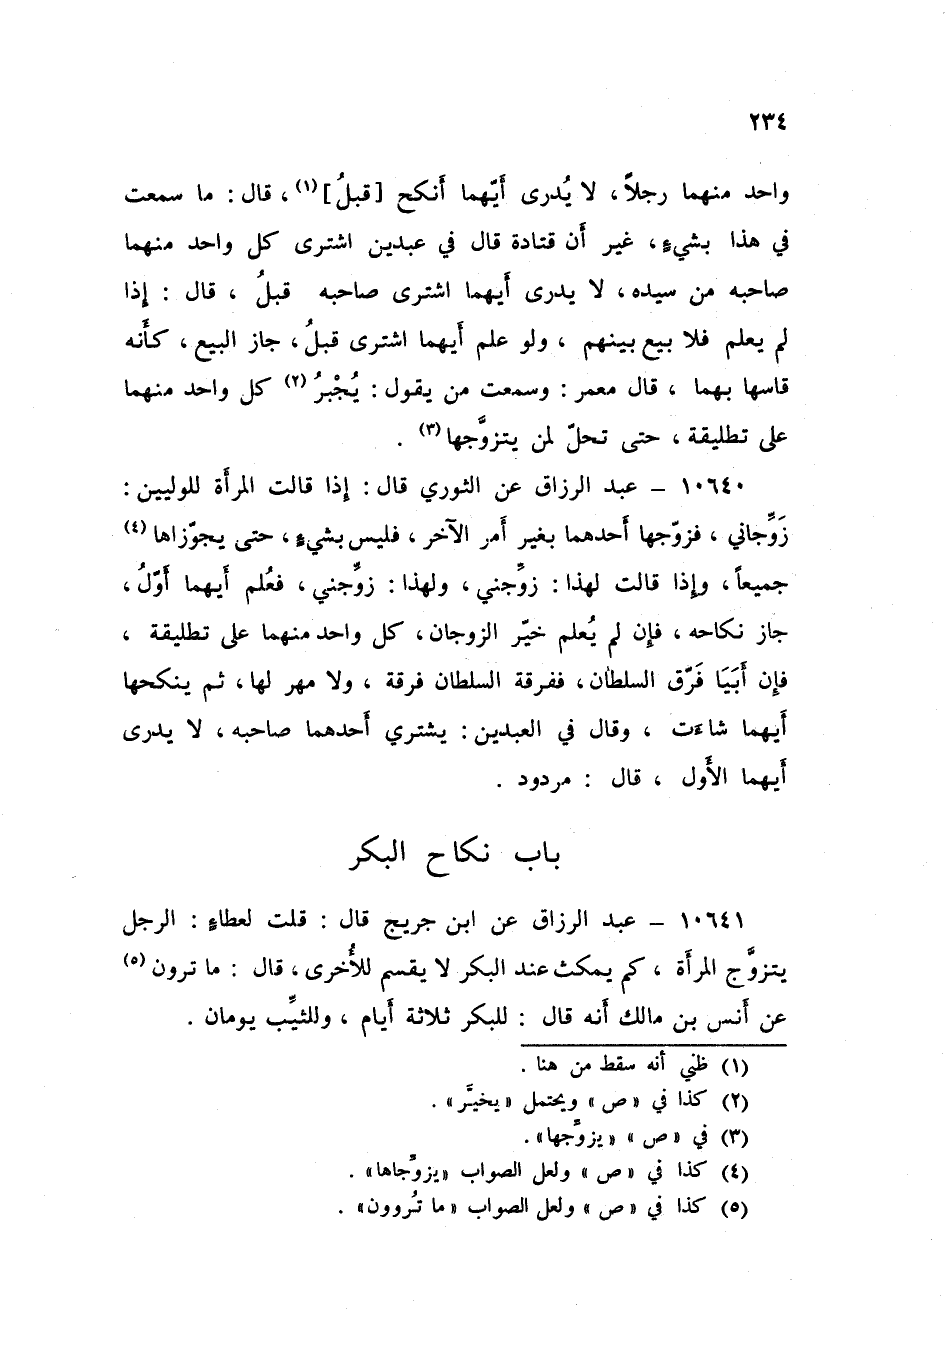 ٢٣٤
واحد منهما رجلاً، لا يُدرى أَيّهما أَنكح [قبلُ](١)، قال: ما سمعت
في هذا بشيءٍ، غير أَن قتادة قال في عبدين اشترى كل واحد منهما
صاحبه من سيده، لا يدرى أَيهما اشترى صاحبه قبلُ ، قال : إِذا
لم يعلم فلا بيع بينهم ، ولو علم أَيهما اشترى قبلُ، جاز البيع ، كأَنه
قاسها بهما ، قال معمر : وسمعت من يقول : يُجْبرُ (٢) كل واحد منهما
على تطليقة ، حتى تحلّ لمن يتزوَّجها (٣) .
١٠٦٤٠ – عبد الرزاق عن الثوري قال : إِذا قالت المرأَة للوليين :
زَوِّجاني ، فزوّجها أَحدهما بغير أَمر الآخر ، فليس بشيءٍ ، حتى يجوّزاها (٤)
جميعاً ، وإِذا قالت لهذا : زوِّجني ، ولهذا : زوِّجني ، فعُلم أَيهما أَوّلُ ،
جاز نكاحه ، فإِن لم يُعلم خيّر الزوجان ، كل واحد منهما على تطليقة ،
فإِن أَبَيَا فَرّق السلطان ، ففرقة السلطان فرقة ، ولا مهر لها ، ثم ينكحها
أَيهما شاءَت ، وقال في العبدين : يشتري أَحدهما صاحبه ، لا يدرى
أَيهما الأَول ، قال : مردود .
باب نكاح البكر
١٠٦٤١ – عبد الرزاق عن ابن جريج قال : قلت لعطاءٍ : الرجل
يتزوَّج المرأَة ، كم يمكث عند البكر لا يقسم للأُخرى ، قال : ما ترون (٥)
عن أَنس بن مالك أَنه قال : للبكر ثلاثة أَيام ، وللثيِّب يومان .
(١) ظني أنه سقط من هنا .
(٢) كذا في « ص » ويحتمل « يخيَّر » .
(٣) في « ص » « يزوّجها » .
(٤) كذا في « ص » ولعل الصواب « يزوِّجاها » .
(٥) كذا في « ص » ولعل الصواب « ما تُروون » .